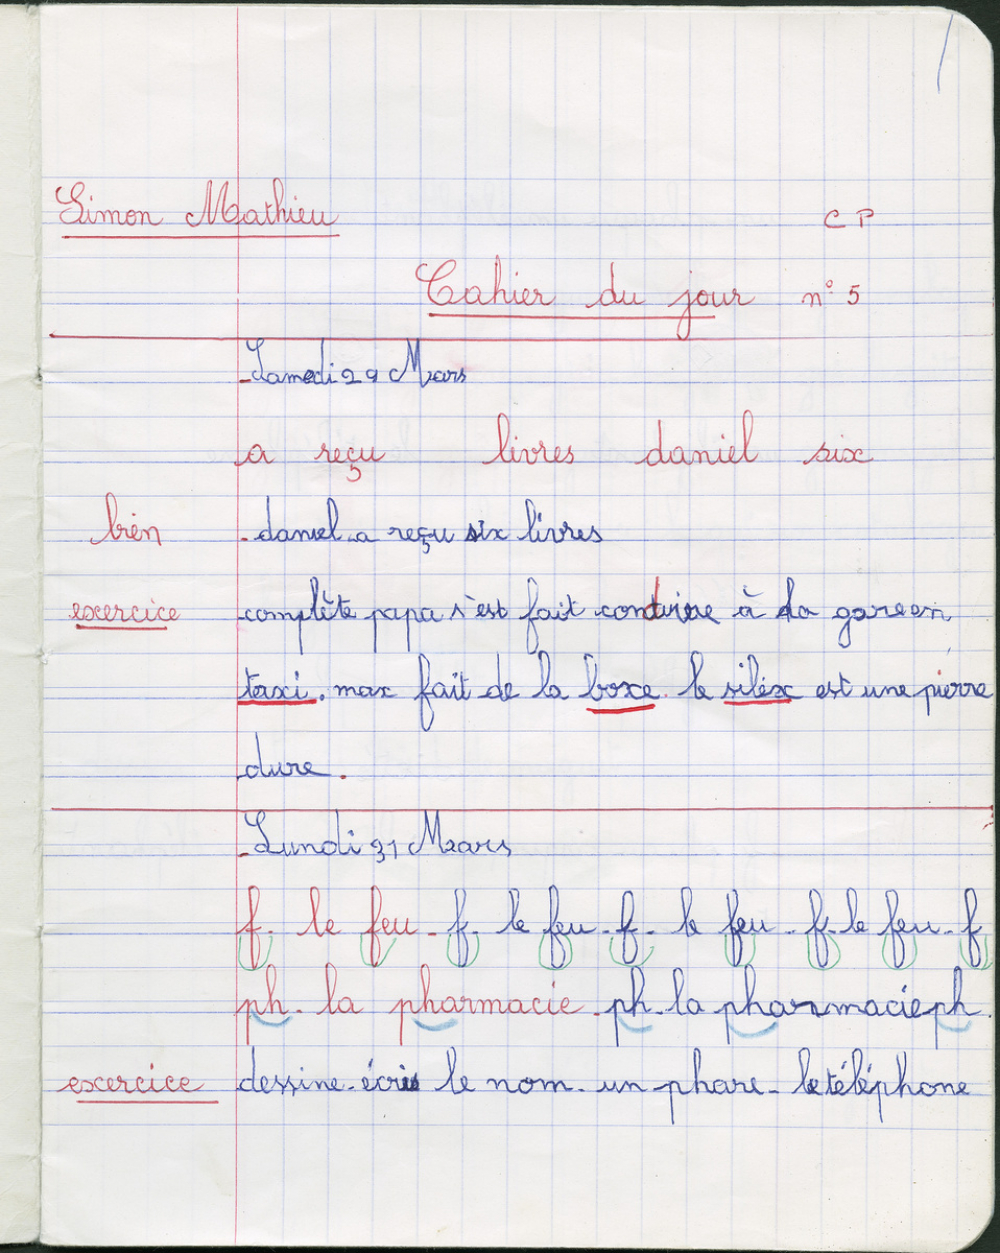 Simon Mathieu
CP
Cahier du jour n° 5
Samedi 29 Mars
a reçu livres daniel six
bien
daniel a reçu six livres
exercice
complète papa s'est fait conduire à la gare en
taxi. max fait de la boxe. le silex est une pierre
dure.
Lundi 31 Mars
f. le feu - f. le feu - f. le feu - f. le feu - f
ph. la pharmacie - ph. la pharmacie ph.
exercice
dessine - écris le nom - un phare - le téléphone